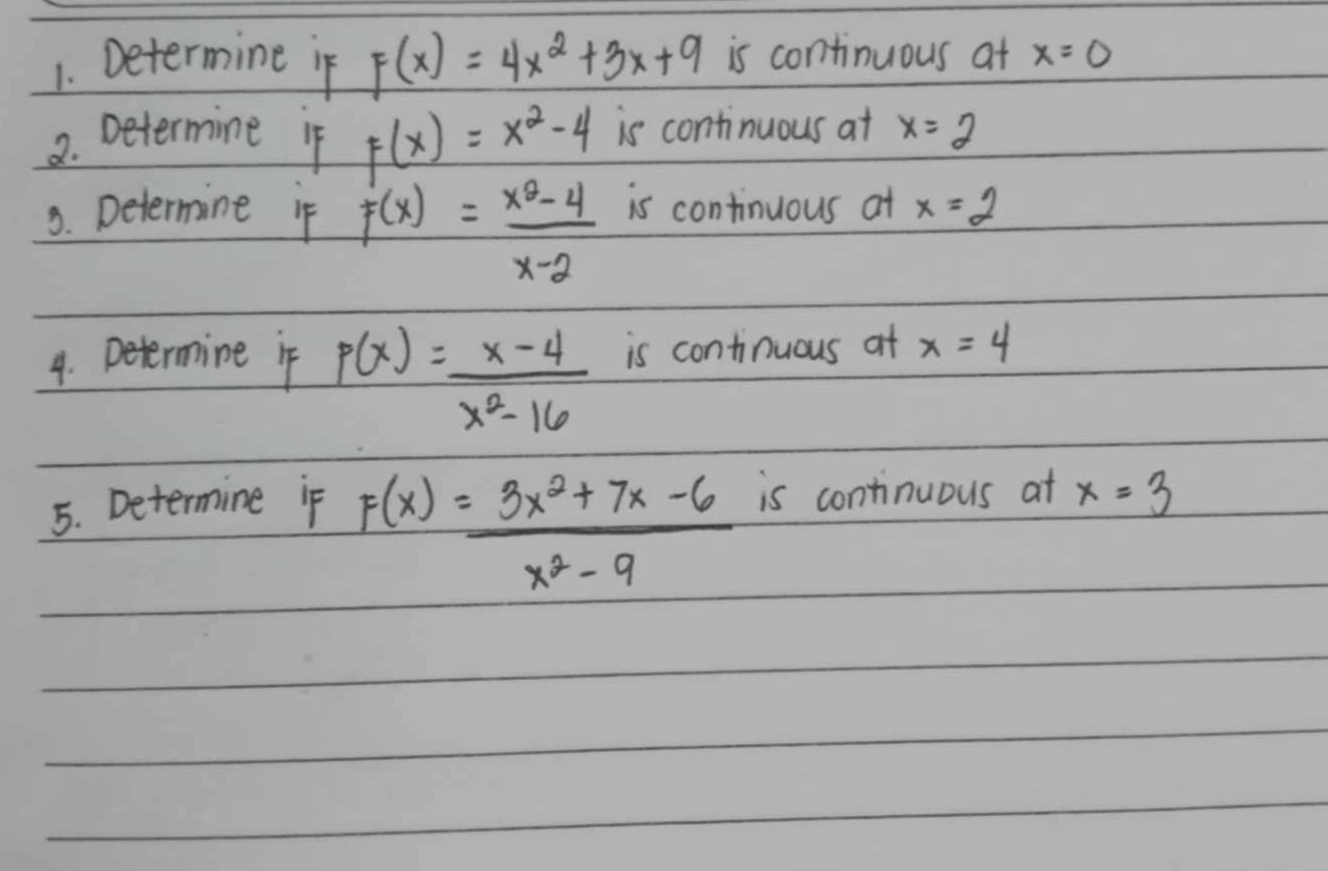 1. Determine if f(x) = 4x²+3x+9 is continuous at x=0
2. Determine if f(x) = x²-4 is continuous at x=2
3. Determine if f(x) = x²-4 is continuous at x=2
x-2
4. Determine if f(x) = x-4 is continuous at x=4
x²-16
5. Determine if f(x) = 3x²+7x-6 is continuous at x=3
x²-9